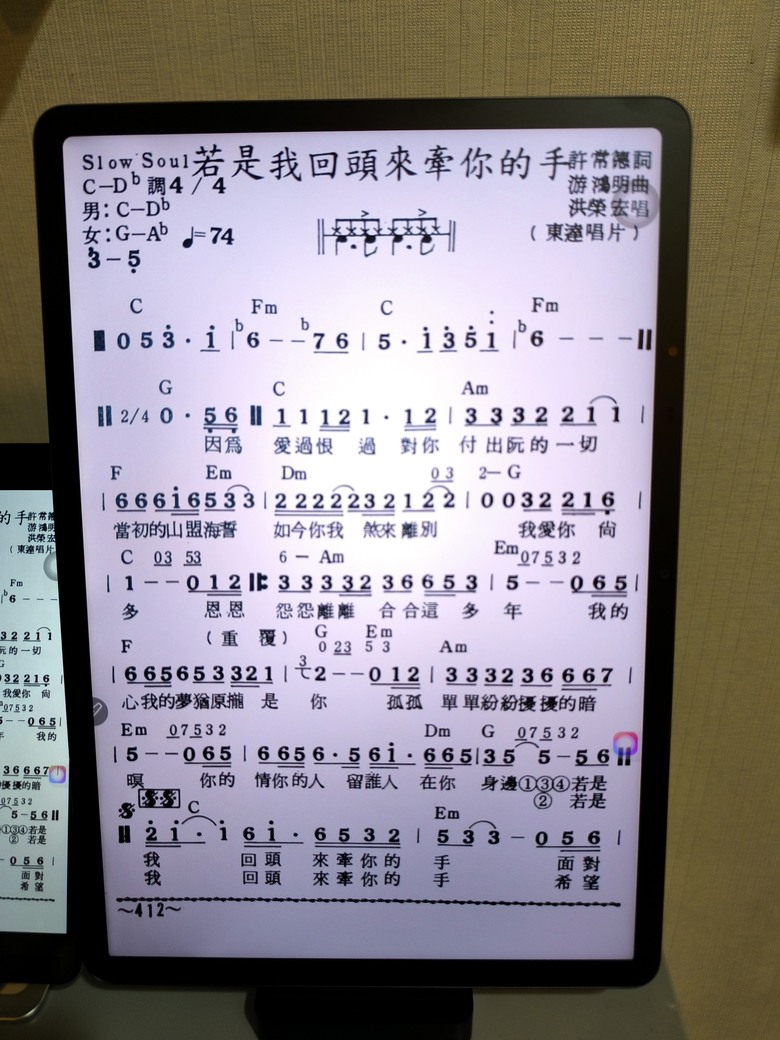 Slow Soul 若是我回頭來牽你的手 許常德詞
C-D♭ 調 4/4 游鴻明曲
男: C-D♭ 洪榮宏唱
女: G-A♭ ♩=74 (東達唱片)
3-5
C Fm C Fm
0 5 3 · 1 | ♭6 - - ♭7 6 | 5 · 1 3 5 1 | ♭6 - - -
G C Am
2/4 0 · 5 6 1 1 1 2 1 · 1 2 | 3 3 3 2 2 1 1 |
因為 愛過恨 過 對你 付出阮的一切
F Em Dm 0 3 2- G
| 6 6 6 1 6 5 3 3 | 2 2 2 2 2 3 2 1 2 2 | 0 0 3 2 2 1 6 |
當初的山盟海誓 如今你我 煞來離別 我愛你 尚
C 0 3 5 3 6 - Am Em 0 7 5 3 2
| 1 - - 0 1 2 3 3 3 3 2 3 6 6 5 3 | 5 - - 0 6 5 |
多 恩恩 怨怨離離 合合這 多 年 我的
(重 覆) G Em
F 0 2 3 5 3 Am
| 6 6 5 6 5 3 3 2 1 | 3 2 - - 0 1 2 | 3 3 3 2 3 6 6 6 7 |
心我的夢猶原攏 是 你 孤孤 單單紛紛擾擾的暗
Em 0 7 5 3 2 Dm G 0 7 5 3 2
| 5 - - 0 6 5 | 6 6 5 6 · 5 6 1 · 6 6 5 | 3 5 5 - 5 6
暝 你的 情你的人 留誰人 在你 身邊①③④若是
② 若是
C Em
2 1 · 1 6 1 · 6 5 3 2 | 5 3 3 - 0 5 6 |
我 回頭 來牽你的 手 面對
我 回頭 來牽你的 手 希望
~412~